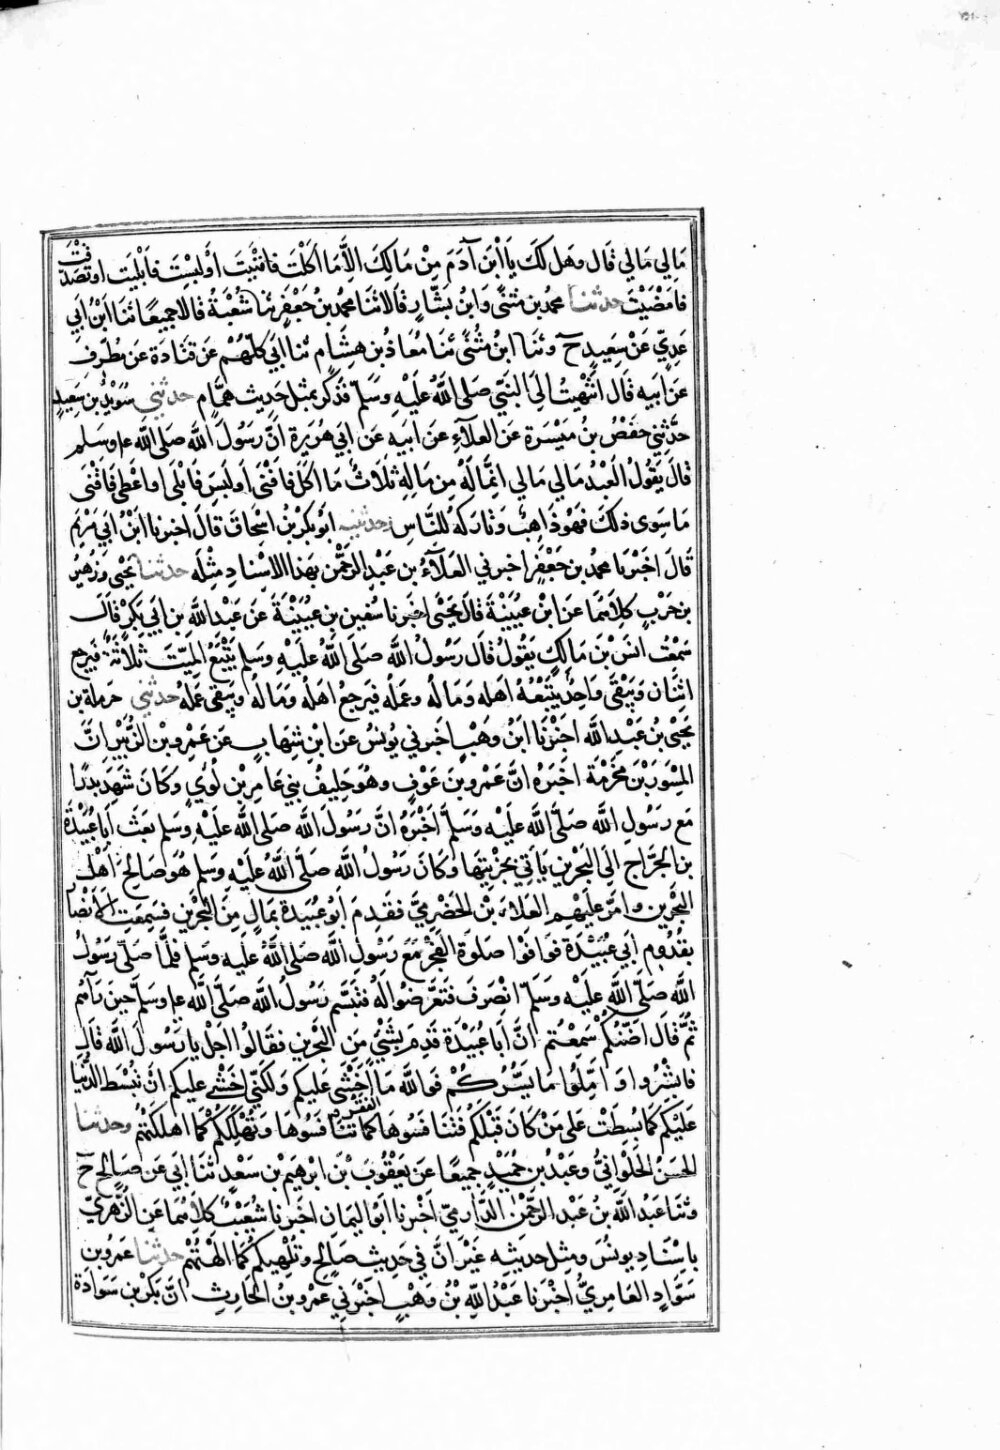 مَالِي مَالِي قَال وهَل لَكَ يَا ابْنَ آدَمَ مِنْ مَالِكَ الاَّ مَا اَكَلْتَ فَافْنَيْتَ اَوْ لبِسْتَ فَابْلَيْتَ اوتَصَدَّقْتَ
فَامْضَيْتَ حدثنا محمد بن مثنًى وَابْنُ بَشَّارٍ قَالاثنَا محمد بنُ جَعْفَرٍ ثنا شعْبَةُ قالا جميعًا ثنا ابْنُ اَبي
عَدِيٍّ عَنْ سَعِيدٍ ح وثَنَا ابنُ مثَنًّى ثَنَا مُعَاذُ بن هِشَامٍ ثنا ابي كلّهُمْ عَنْ قتَادَةَ عَنْ مُطَرِّف
عَن ابيه قَال انْتَهَيْتُ اِلَى النَبّيِ صَلى اللهُ عَلَيْهِ وَسَلَّم فَذَكَرَ بمثل حَدِيثِ همَّامٍ حدثني سُوَيْدُ بن سَعِيدٍ
حدَّثَنِي حَفصُ بنُ مَيْسَرَةَ عَنِ العَلآءِ عَنْ ابَيهِ عَنْ ابي هُرَيرةَ اَنَّ رسُولَ اَللهِ صَلى الله ع‍ل وَسَلم
قالَ يَقولُ العَبْدُ مَالي مَالي اِنَّمَا لَهُ مِن مَالِهِ ثَلَاثٌ مَا اَكَلَ فَافْنَى اَو لَبسَ فَابْلَى اواعْطَى فَاقْنَى
مَا سوَى ذَلكَ فَهُوَ ذَاهِبٌ وَتَارِكهُ للنَّاسِ وَحَدثنيه ابُو بَكْرِ بنُ اِسْحَاقَ قَالَ اخبرنا ابنُ ابي مَرْيَم
قَالَ اَخْبَرَنَا محمد بن جَعْفَرٍ اخبرني العَلآءُ بن عَبدِ الرَحمْنِ بهَذا الاسْنَادِ مثْلَه حدثنا يَحْيى وَزهَيرُ
بنِ حَرْبٍ كلاَهمَا عَن ابْنِ عُيَيْنَةَ قالَ يَحْيَى اخبرنا سُفين بن عيَيْنَةَ عَنْ عَبْدِ اللهِ بنِ اَبي بَكْرٍ قَال
سَمعْت انسَ بْنَ مَالِكٍ يَقُولُ قَال رَسُولُ اللهِ صَلَى اللهُ عَليَهِ وَسَلم يَتْبَعُ المَيّتَ ثَلاَثَةٌ فَيرجعُ
اثنَانِ وَيَبْقَى وَاحِدٌ يَتْبَعُهُ اهله وَمَالهُ وعَملُه فَيَرجعُ اهَلهُ وَمَالهُ ويَبقى عَملُه حدثني حرمَلة بن
يَحْيَى بنِ عَبْدِ اللهِ اَخْبَرَنَا ابْنُ وَهْبٍ اخَبرني يُونسُ عَن ابنِ شِهَابٍ عَن عَمْرِو بن الزُّبَيْرِ اِنَّ
المِسْوَرَ بْنَ مَخْرَمَةَ اخبَرَهُ انَّ عَمْرو بنَ عَوْفٍ وهُوَ حَليفُ بَني عَامِرِ بْن لُؤيٍ وكَانَ شَهِدَ بدرًا
مَع رَسُولِ اللهِ صَلَّى اللهُ عَلَيْهِ وَسَلَّم اَخْبَرَهُ انَّ رَسُولَ اَللهِ صَلى الله عَلَيهِ وَسَلم بَعَثَ ابَاعُبَيْدَةَ
بن الجرَّاحِ اِلى البَحْرِينِ يَاتِي بجزْيَتِهَا وكَانَ رَسُولُ اللهِ صَلَّى اللهُ عَلَيهِ وَسَلم هُوَ صَالِحَ اَهْل
البَحْرينِ وَامَّرَ عَلَيْهِم العَلاءَ بْنَ الحَضْرمِيِّ فقَدِمَ اَبُو عُبَيدَةَ بِمَالٍ مِنَ البَحْرينِ فَسَمِعَت الاَنْصَارُ
بقُدُومِ ابي عُبَيْدَةَ فَوَافَوْا صَلوةَ الفَجْرِ مَعَ رَسُولِ اللهِ صَلى اللهُ عَليهِ وَسَلم فَلَمَّا صَلَّى رَسُولُ
اللهِ صَلَّى اللهِ عَلَيْهِ وَسَلَّم انْصَرَفَ فَتَعَرَّضُوا لهُ فَتَبَسَّم رَسُولُ اللهِ صَلَّى اللهُ ع‍ل وَسَلَّم حِينَ رَآهُم
ثُمَّ قَالَ اظنُّكُمْ سَمِعْتُم انَّ اَبَا عُبَيْدَةَ قَدِمَ بشَيْئٍ مِنَ البَحْرينِ فَقَالُوا اجَلْ يا رَسُولَ اللهِ قَالَ
فَابْشِرُوا وَامِّلوُا مَا يَسُرُّكُمْ فَوَاللهِ مَا الفَقْر اَخْشَى عَليكم وَلكنّي اخْشَى عليكم انْ تُبْسَطَ الدُّنْيَا
عَليَكم كَما بُسِطَتْ عَلى مَنْ كَانَ قبْلكُم فَتَنَافسُوهَا كمَا تنَافسُوهَا وَتُهْلِكَكُمْ كَمَا اهلكَتْهُمْ وحدثنا
الحسَنُ الحَلوَانيُّ وعَبْدُ بن حُمَيْدٍ جَمِيعًا عَنْ يَعْقُوبَ بْنِ ابْرهِيمَ بْنِ سَعْدٍ ثنَا ابَي عَن صَالِحٍ ح
وثنا عَبْدُ اللهِ بنُ عَبْدِ الرَحمْنِ الدَّارِميُّ اَخْبَرنا ابَوُ اليَمَانِ اخبَرنا شُعَيْبٌ كلاَهمَا عَنِ الزُّهْرِيّ
باِسْنَادِ يونُسَ ومثلِ حَدِيثِهِ غَيْرَ انَّ في حَدِيثِ صَالِحٍ وَتُلْهيكم كَمَا الْهَتْهُمْ حدثنا عَمْرو بن
سَوَّادٍ العَامِرِيُّ اخْبَرنا عَبْدُ اللّهِ بْنُ وَهْبٍ اخْبَرَني عمْرو بنُ الحَارِثِ انَّ بَكْرَ بن سَوَادَةَ